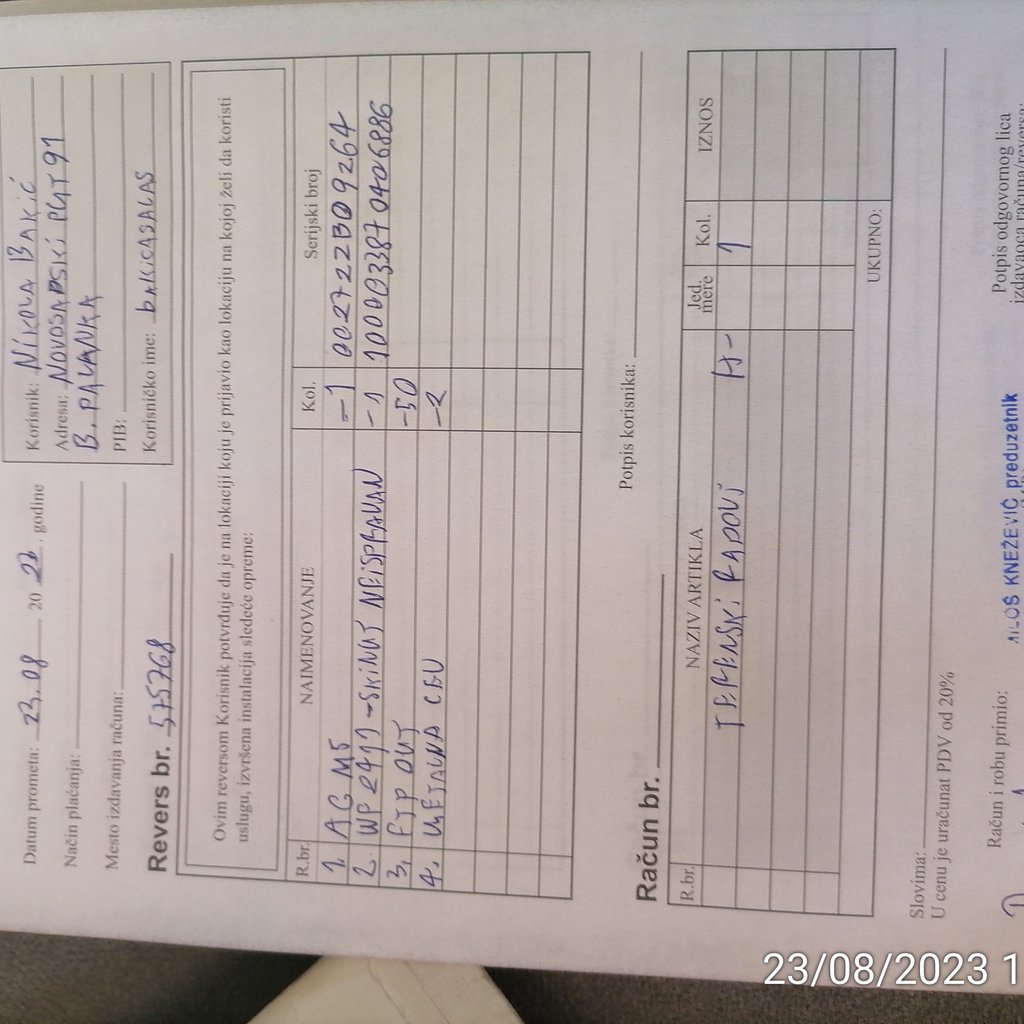 Datum prometa: 23.08 20 22. godine
Način plaćanja:
Mesto izdavanja računa:
Revers br. 575768
Korisnik: NIKOLA BAKIĆ
Adresa: NOVOSADSKI PUT 91
B. PALANKA
PIB:
Korisničko ime: bakicasalas
Ovim reversom Korisnik potvrđuje da je na lokaciji koju je prijavio kao lokaciju na kojoj želi da koristi
uslugu, izvršena instalacija sledeće opreme:
R.br. NAIMENOVANJE Kol. Serijski broj
1. AG M5 -1 002722BD9264
2. WP 2411 -SKINUT NEISPRAVAN -1 1000033870406886
3. FTP OUT -50
4. METALNA CEV -2
Potpis korisnika:
Račun br.
R.br. NAZIV ARTIKLA Jed. mere Kol. IZNOS
TERENSKI RADOVI H- 1
UKUPNO:
Slovima:
U cenu je uračunat PDV od 20%
Račun i robu primio:
Potpis odgovornog lica
izdavaoca računa/reversa:
MILOŠ KNEŽEVIĆ preduzetnik
23/08/2023 1